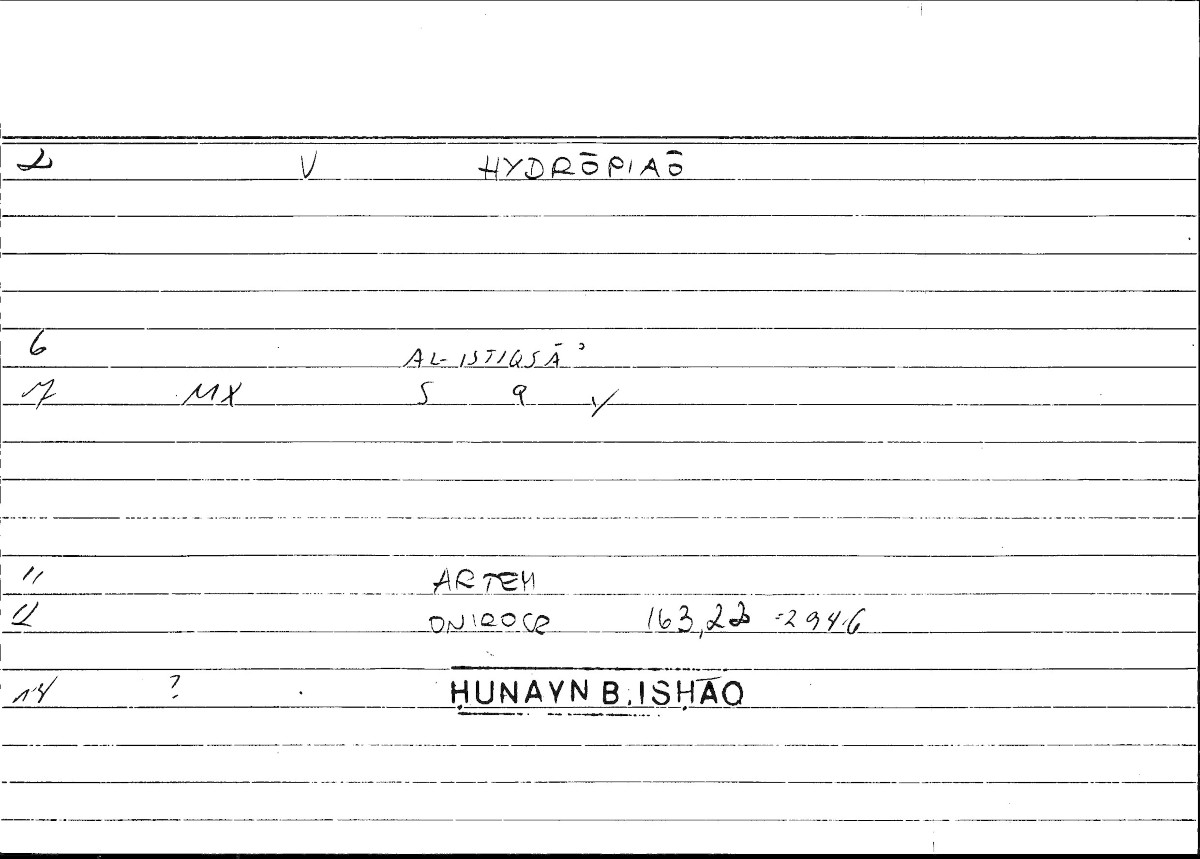 2 V HYDRŌPIAŌ
6 AL-ISTIQSĀʾ
7 MX 5 9 V
11 ARTEM
12 ONIROCR 163,22 =294.6
14 ? ḤUNAYN B. ISḤĀQ